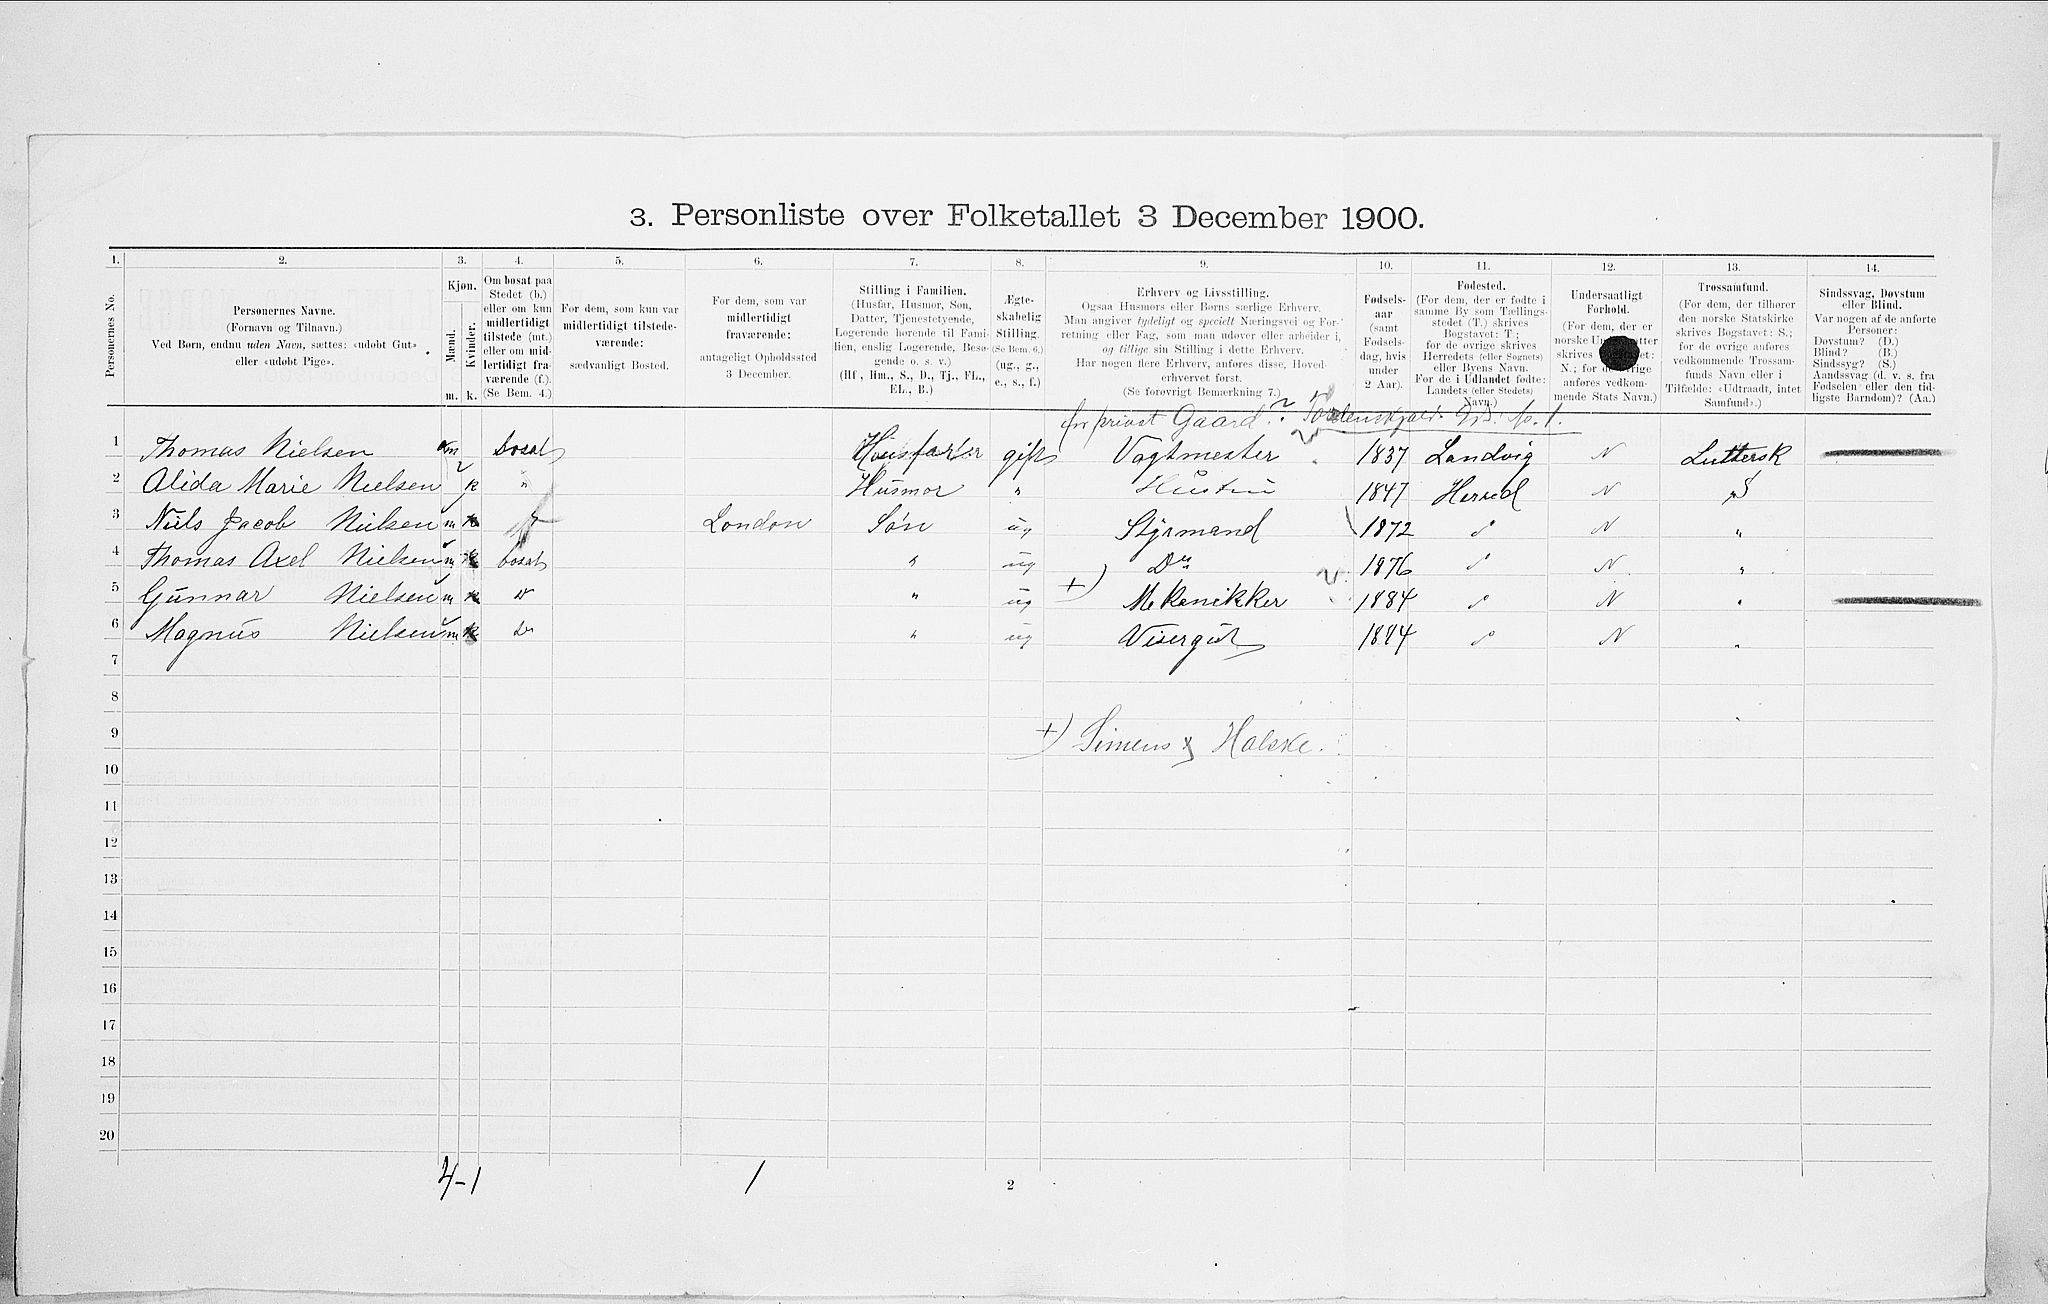 3. Personliste over Folketallet 3 December 1900.
1. 2. 3. 4. 5. 6. 7. 8. 9. 10. 11. 12. 13. 14.
Personernes No.
Personernes Navne.
(Fornavn og Tilnavn.)
Ved Børn, endnu uden Navn, sættes: «udøbt Gut»
eller «udøbt Pige».
Kjøn.
Mænd.
Kvinder.
m. k.
Om bosat paa
Stedet (b.)
eller om kun
midlertidigt
tilstede (mt.)
eller om mid-
lertidigt fra-
værende (f.).
(Se Bem. 4.)
For dem, som kun var
midlertidigt tilstede-
værende:
sædvanligt Bosted.
For dem, som var
midlertidigt
fraværende:
antageligt Opholdssted
3 December.
Stilling i Familien.
(Husfar, Husmor, Søn,
Datter, Tjenestetyende,
Logerende hørende til Fami-
lien, enslig Logerende, Besø-
gende o. s. v.)
(Hf., Hm., S., D., Tj., FL.,
EL., B.)
Ægte-
skabelig
Stilling.
(Se Bem. 6.)
(ug., g.,
e., s., f.)
Erhverv og Livsstilling.
Ogsaa Husmors eller Børns særlige Erhverv.
Man angiver tydeligt og specielt Næringsvei og For-
retning eller Fag, som man udøver eller arbeider i,
og tillige sin Stilling i dette Erhverv.
Har nogen flere Erhverv, anføres disse, Hoved-
erhvervet først.
(Se forøvrigt Bemærkning 7.)
Fødsels-
aar
(samt
Fødsels-
dag, hvis
under
2 Aar).
Fødested.
(For dem, der er fødte i
samme By som Tællings-
stedet (T.) skrives
Bogstavet: T;
for de øvrige skrives
Herredets (eller Sognets)
eller Byens Navn.
For de i Udlandet fødte:
Landets (eller Stedets)
Navn.)
Undersaatligt
Forhold.
(For dem, der er
norske
skrives
N.; for de øvrige
anføres vedkom-
mende Stats Navn.)
Trossamfund.
(For dem, der tilhører
den norske Statskirke
skrives Bogstavet: S.;
for de øvrige anføres
vedkommende Trossam-
funds Navn eller i
Tilfælde: «Udtraadt, intet
Samfund».)
Sindssvag, Døvstum
eller Blind.
Var nogen af de anførte
Personer:
Døvstum? (D.)
Blind? (B.)
Sindssyg? (S.)
Aandssvag (d. v. s. fra
Fødselen eller den tid-
ligste Barndom)? (Aa.)
for privat Gaard?
1 Thomas Nielsen m bosat Husfader gift Vagtmester 1837 Landvig N Luttersk
2 Alida Marie Nielsen k " Husmor " Hustru 1847 Herred N S
3 Niels Jacob Nielsen m f London Søn ug Styrmand 1872 N "
4 Thomas Axel Nielsen m bosat " ug Do 1876 N "
5 Gunnar Nielsen m " ug +) Mekanikker 1884 N "
6 Magnus Nielsen m Do " ug Visergut 1884 N "
7
8
9 +) Simens & Halske.
10
11
12
13
14
15
16
17
18
19
20
4-1 1
2